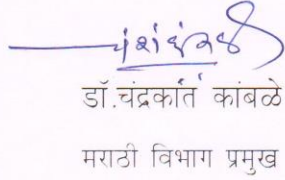 डॉ.चंद्रकांत कांबळे
मराठी विभाग प्रमुख